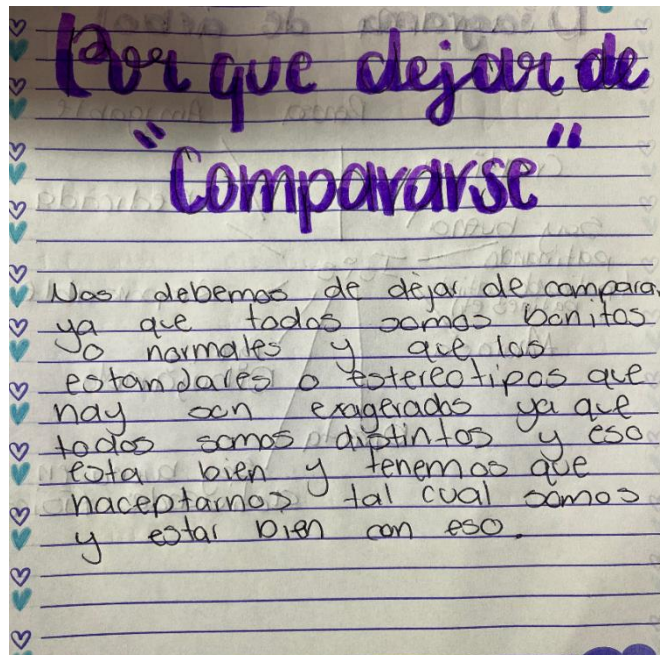 Por que dejar de
"Compararse"
Nos debemos de dejar de comparar
ya que todos somos bonitos
o normales y que los
estandares o estereotipos que
hay son exagerados ya que
todos somos distintos y eso
esta bien y tenemos que
haceptarnos tal cual somos
y estar bien con eso.